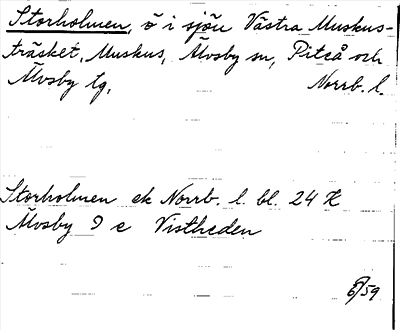 Storholmen, ö i sjön Västra Muskus-
träsket, Muskus, Älvsby sn, Piteå och
Älvsby tg, Norrb. l.
Storholmen ek Norrb. l. bl. 24 K
Älvsby 9 e Vistheden
/59